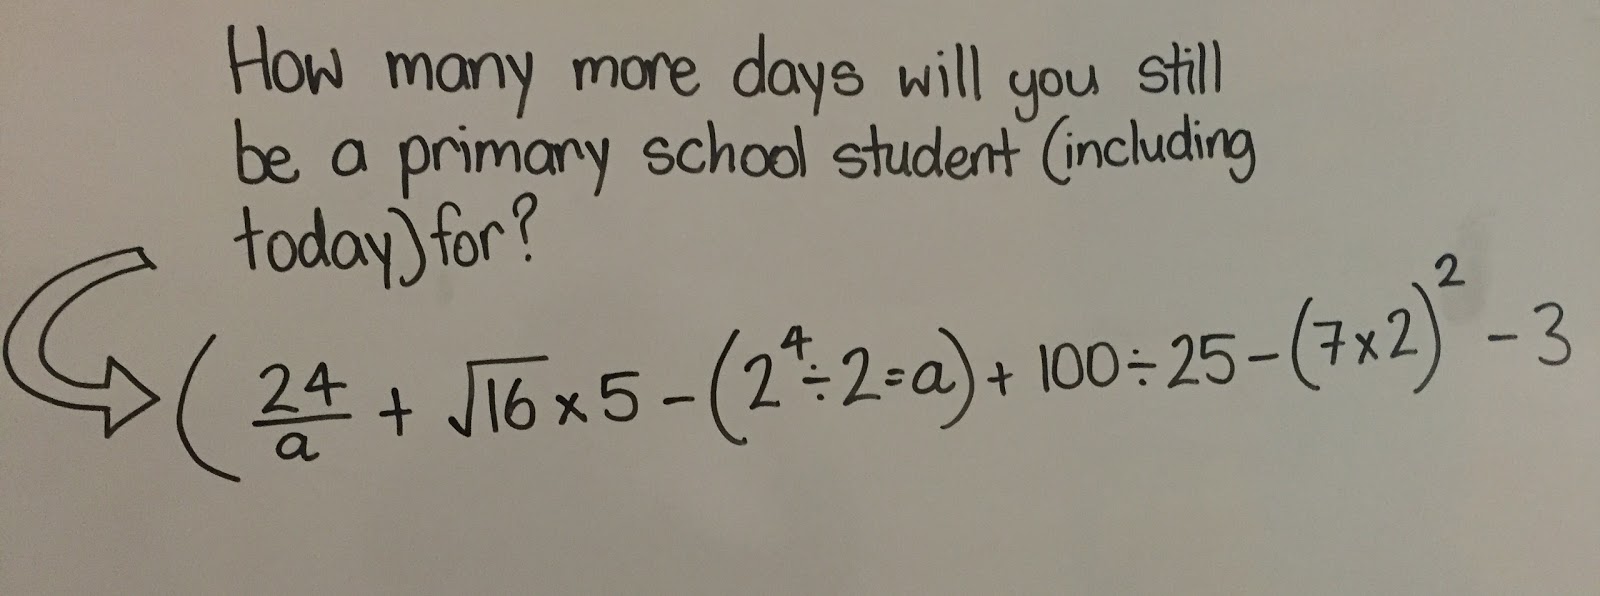 How many more days will you still
be a primary school student (including
today) for?
( 24/a + √16 × 5 - (2⁴ ÷ 2 = a) + 100 ÷ 25 - (7 × 2)² - 3